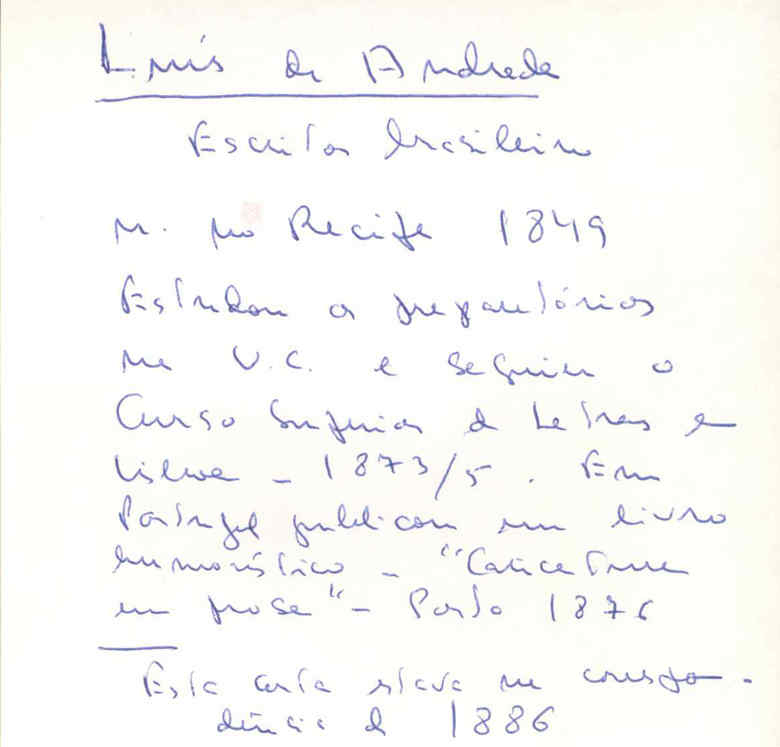 Luís de Andrade
Escritor brasileiro
N. no Recife 1849
Estudou os preparatórios
na U.C. e seguiu o
Curso Superior de Letras em
Lisboa - 1873/5. Em
Portugal publicou um livro
humorístico - "Caricaturas
em prosa" - Porto 1876
Esta carta estava na correspon-
dência de 1886